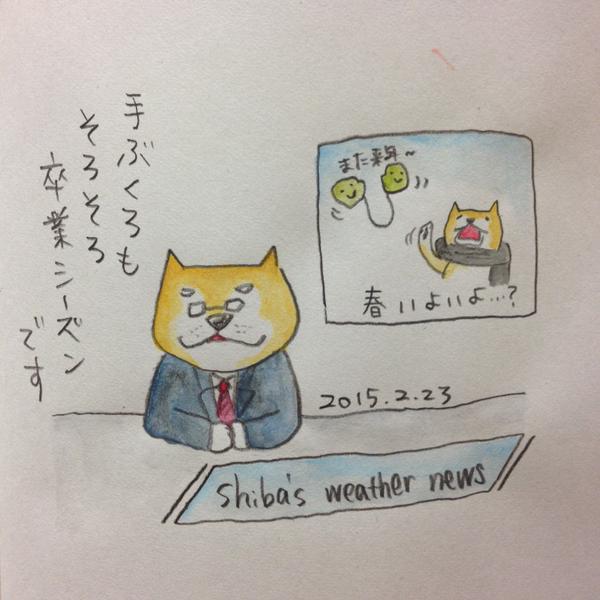 手ぶくろも
そろそろ
卒業シーズン
です
また来年〜
春いよいよ…?
2015.2.23
shiba's weather news